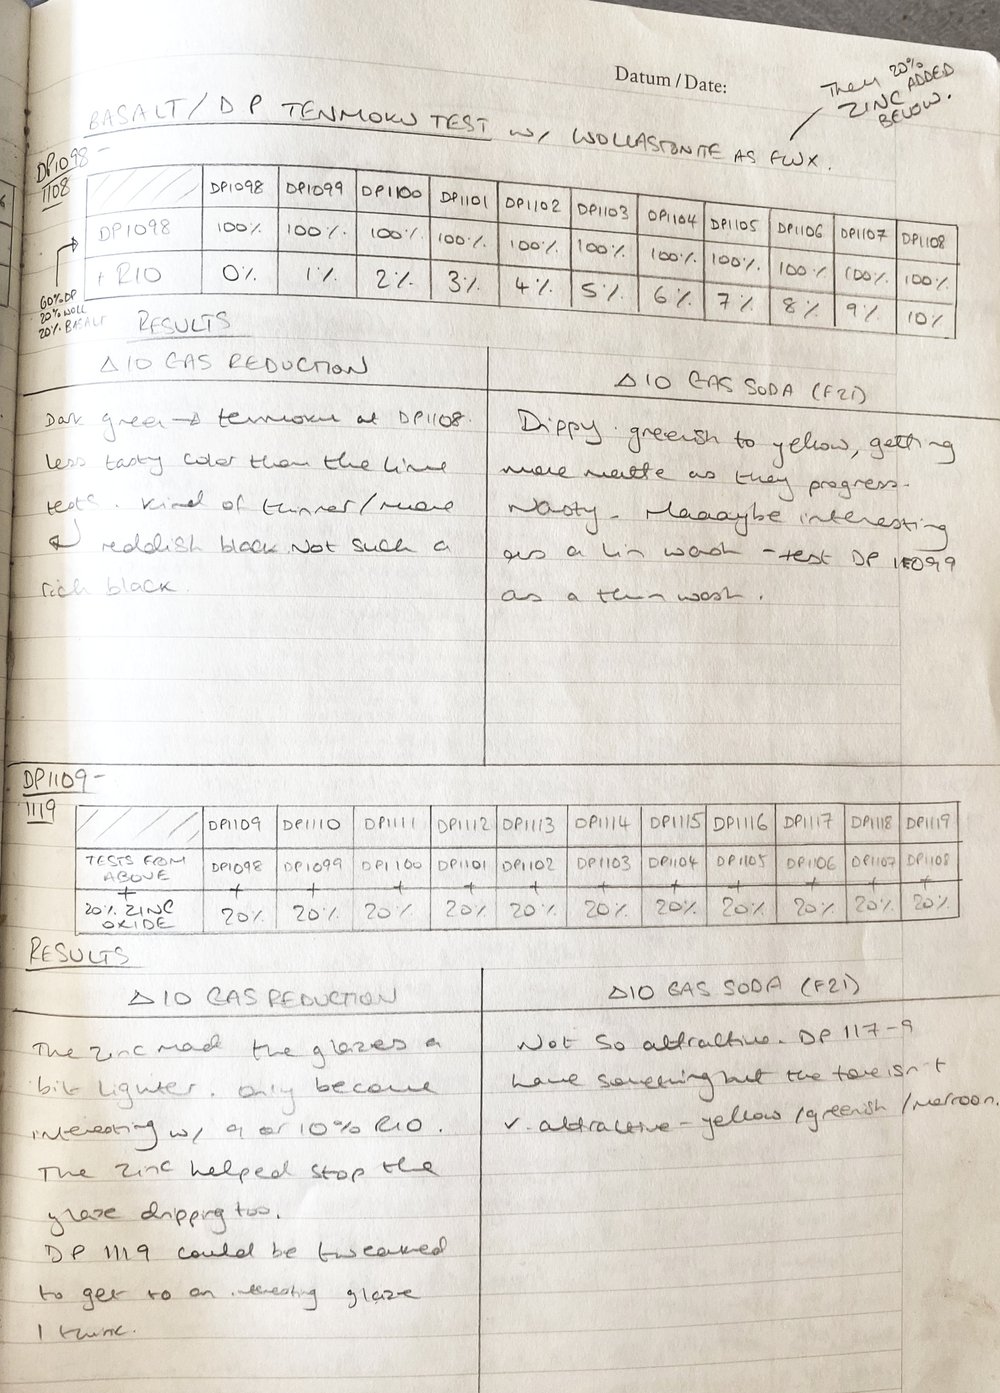 Datum / Date:
Then 20%
ZINC ADDED
BELOW.
BASALT / DP TENMOKU TEST w/ WOLLASTONITE AS FLUX.
DP1098 -
1108
DP1098 DP1099 DP1100 DP1101 DP1102 DP1103 DP1104 DP1105 DP1106 DP1107 DP1108
DP1098 100% 100% 100% 100% 100% 100% 100% 100% 100% 100% 100%
+ RIO 0% 1% 2% 3% 4% 5% 6% 7% 8% 9% 10%
60% DP
20% WOLL
20% BASALT
RESULTS
△10 GAS REDUCTION
Dark green → tenmoku at DP1108.
less tasty color than the lime
tests. Kind of thinner/more
reddish black. Not such a
rich black.
△10 GAS SODA (F21)
Drippy greenish to yellow, getting
more matte as they progress.
Nasty. Maaaybe interesting
as a lin wash - test DP 1099
as a thin wash.
DP1109 -
1119
DP1109 DP1110 DP1111 DP1112 DP1113 DP1114 DP1115 DP1116 DP1117 DP1118 DP1119
TESTS FROM
ABOVE DP1098 DP1099 DP1100 DP1101 DP1102 DP1103 DP1104 DP1105 DP1106 DP1107 DP1108
+ + + + + + + + + + + +
20% ZINC
OXIDE 20% 20% 20% 20% 20% 20% 20% 20% 20% 20% 20%
RESULTS
△10 GAS REDUCTION
The zinc mad the glazes a
bit lighter. Only become
interesting w/ 9 or 10% RIO.
The zinc helped stop the
glaze dripping too.
DP 1119 could be tweaked
to get to an interesting glaze
I think.
△10 GAS SODA (F21)
Not so attractive. DP 117-9
have something but the tone isn't
v. attractive - yellow/greenish/maroon.